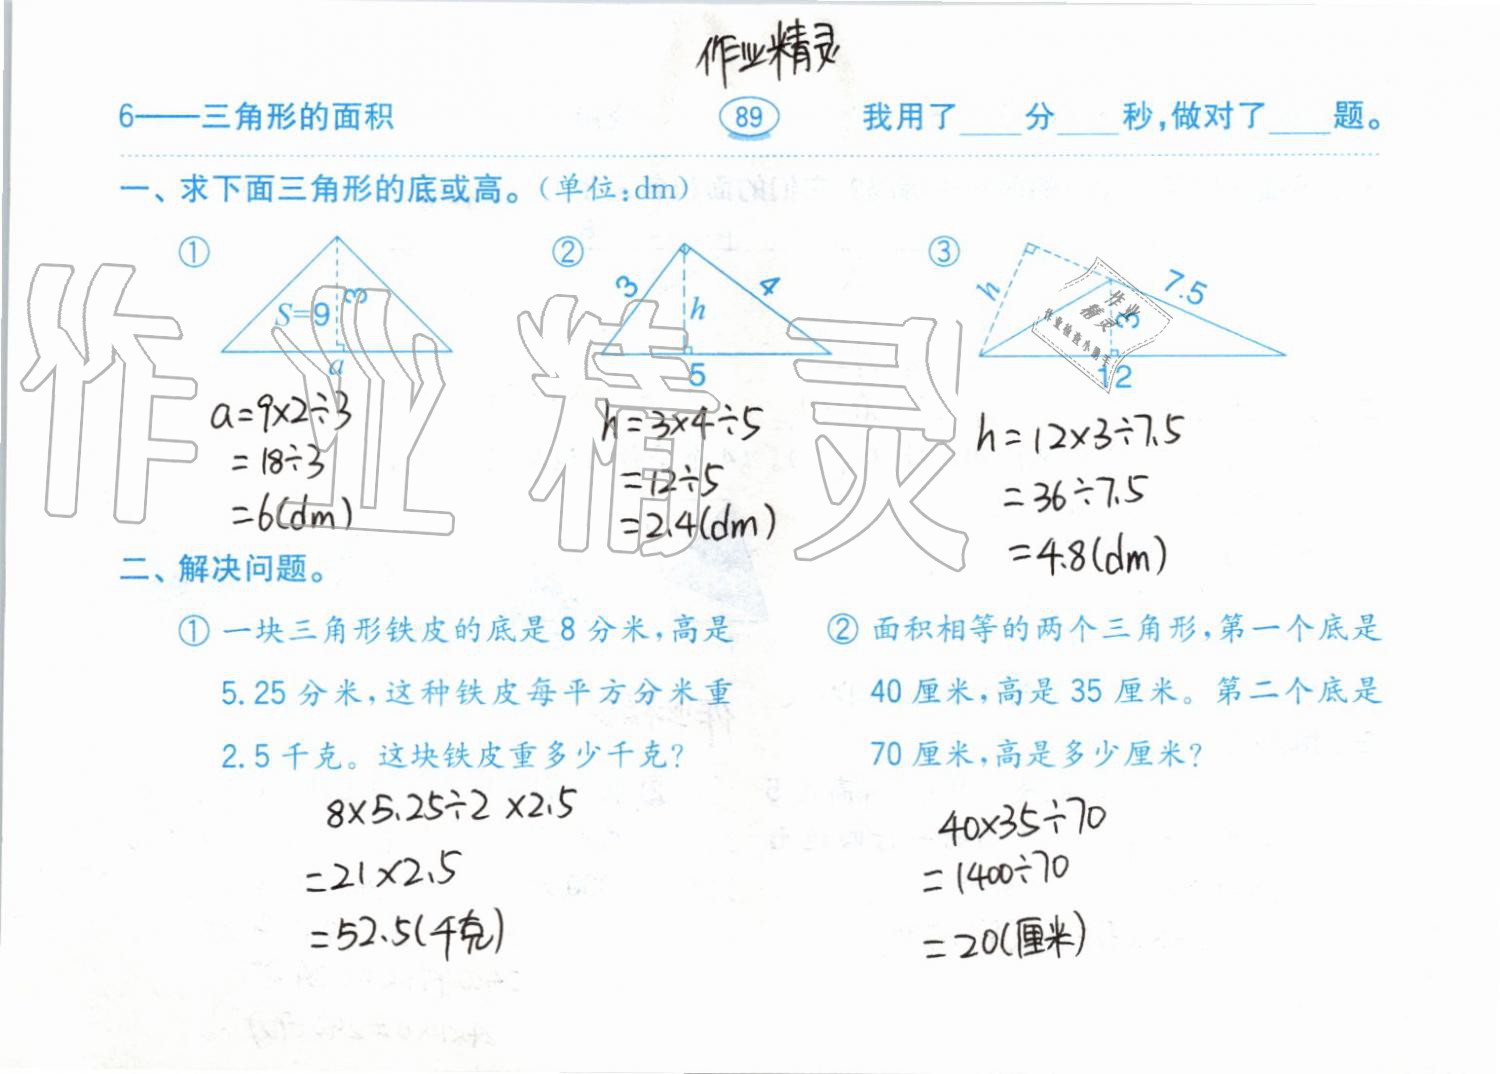 作业精灵
6——三角形的面积 89 我用了____分____秒,做对了____题。
一、求下面三角形的底或高。(单位:dm)
① ② ③
S=9 3 a
3 4 h 5
h 7.5 3 12
作业
精灵
作业检查小助手
作业精灵
a=9×2÷3
=18÷3
=6(dm)
h=3×4÷5
=12÷5
=2.4(dm)
h=12×3÷7.5
=36÷7.5
=4.8(dm)
二、解决问题。
① 一块三角形铁皮的底是8分米,高是
5.25分米,这种铁皮每平方分米重
2.5千克。这块铁皮重多少千克?
8×5.25÷2×2.5
=21×2.5
=52.5(千克)
② 面积相等的两个三角形,第一个底是
40厘米,高是35厘米。第二个底是
70厘米,高是多少厘米?
40×35÷70
=1400÷70
=20(厘米)